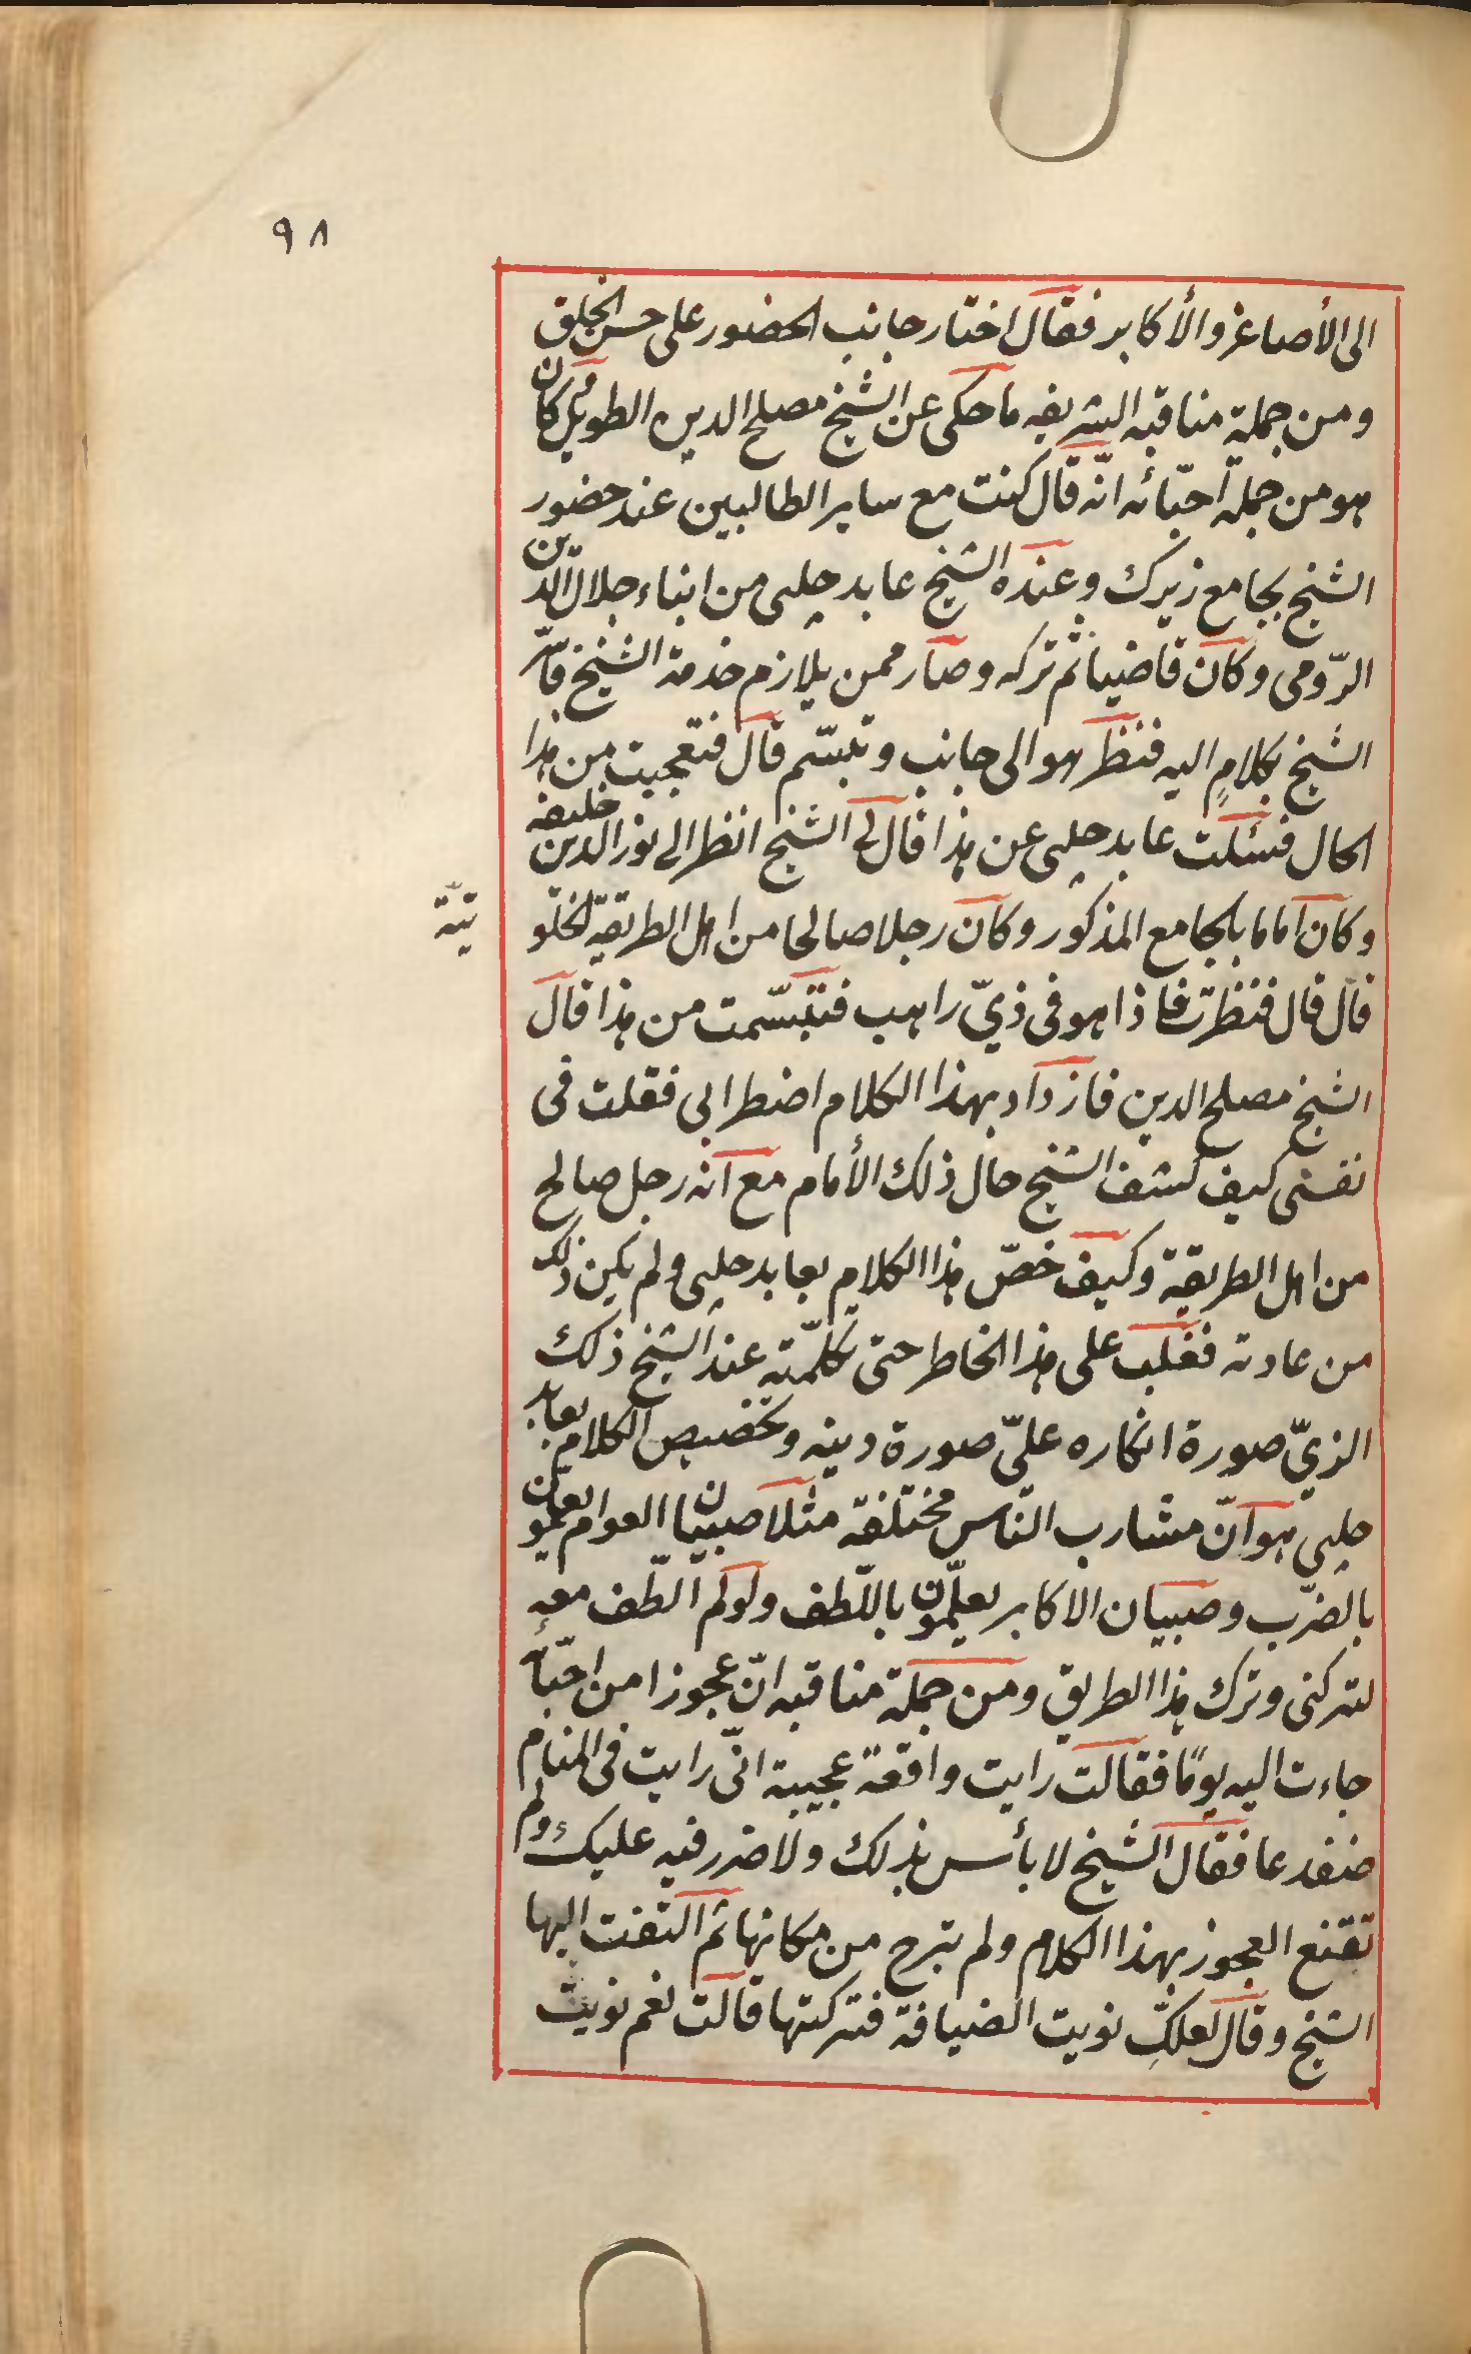 ٩٨
الى الأصاغر والأكابر فقال اختار جانب الحضور على حسن الخلق
ومن جملة مناقبه الشريفه ما حكى عن الشيخ مصلح الدين الطويل كان
هو من جملة احبّائه انّه قال كنت مع ساير الطالبين عند حضور
الشيخ بجامع زيرك وعنده الشيخ عابد چلبى من ابناء جلال الدين
الرّومى وكان قاضيا ثم تركه وصار ممن يلازم خدمة الشيخ فاسرّ
الشيخ بكلامٍ اليه فنظر هو الى جانب وتبسّم قال فتعجبت من هذا
الحال فسئلت عابد چلبى عن هذا قال لى الشيخ انظر الى نور الدين خليفه
وكان اماما بالجامع المذكور وكان رجلا صالحا من اهل الطريقة الخلو
تيّة
قال قال فنظرت فاذا هو فى ذيّ راهب فتبسّمت من هذا قال
الشيخ مصلح الدين فازداد بهذا الكلام اضطرابى فقلت فى
نفسى كيف كشف الشيخ حال ذلك الأمام مع انه رجل صالح
من اهل الطريقة وكيف خصّ هذا الكلام بعابد چلبى ولم يكن ذلك
من عادته فغلب على هذا الخاطر حتى تكلّمته عند الشيخ ذلك
الذيّ صورة انكاره علىّ صورة دينه وتخصيص الكلام بعابد
چلبى هو انّ مشارب النّاس مختلفة مثلا صبيان العوام يعلّمون
بالضّرب وصبيان الاكابر يعلّمون باللّطف ولو لم الطّف معه
لتركنى وترك هذا الطريق ومن جملة مناقبه انّ عجوزا من احبّائه
جاءت اليه يومًا فقالت رايت واقعة عجيبة انّى رايت فى المنام
ضفدعا فقال الشيخ لا بأس بذلك ولا ضرر فيه عليك ولم
تقنع العجوز بهذا الكلام ولم تبرح من مكانها ثم التفت اليها
الشيخ وقال لعلكِ نويت الضيافة فتركتها قالت نعم نويت